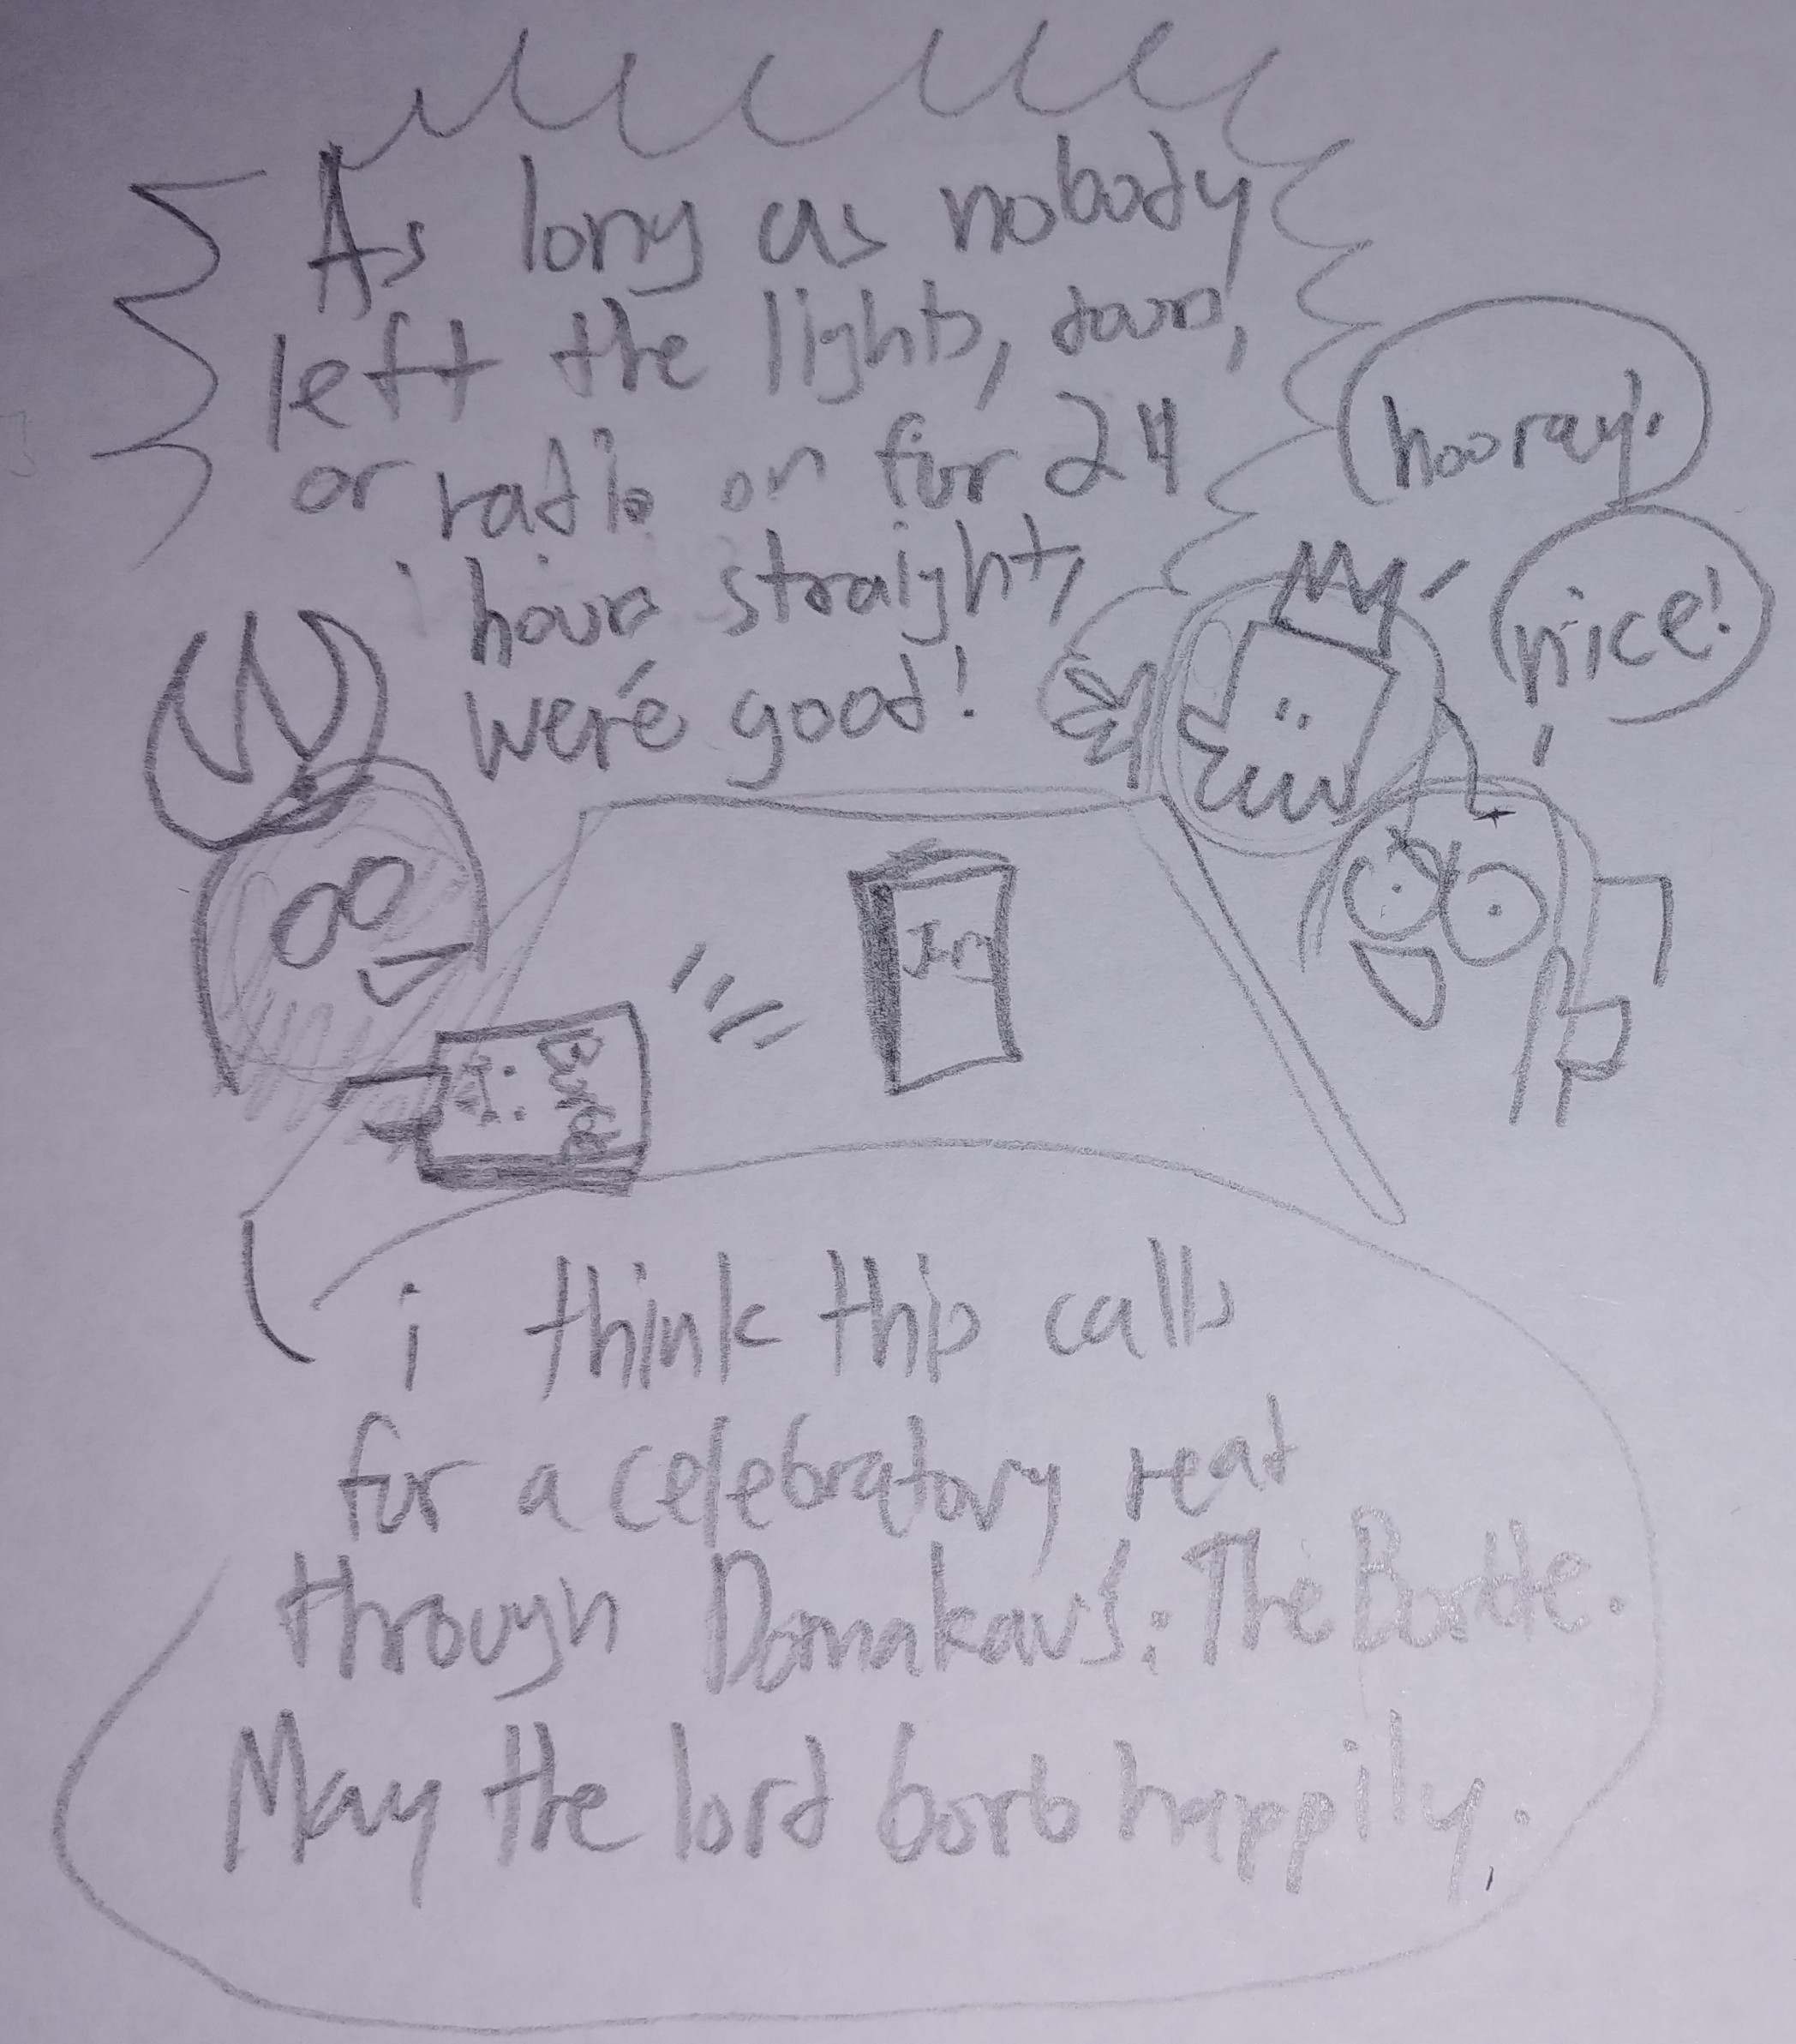 As long as nobody
left the lights, doors,
or radio on for 24
hours straight,
we're good!
hooray!
nice!
i think this calls
for a celebratory read
through
: The
May the lord borb happily.